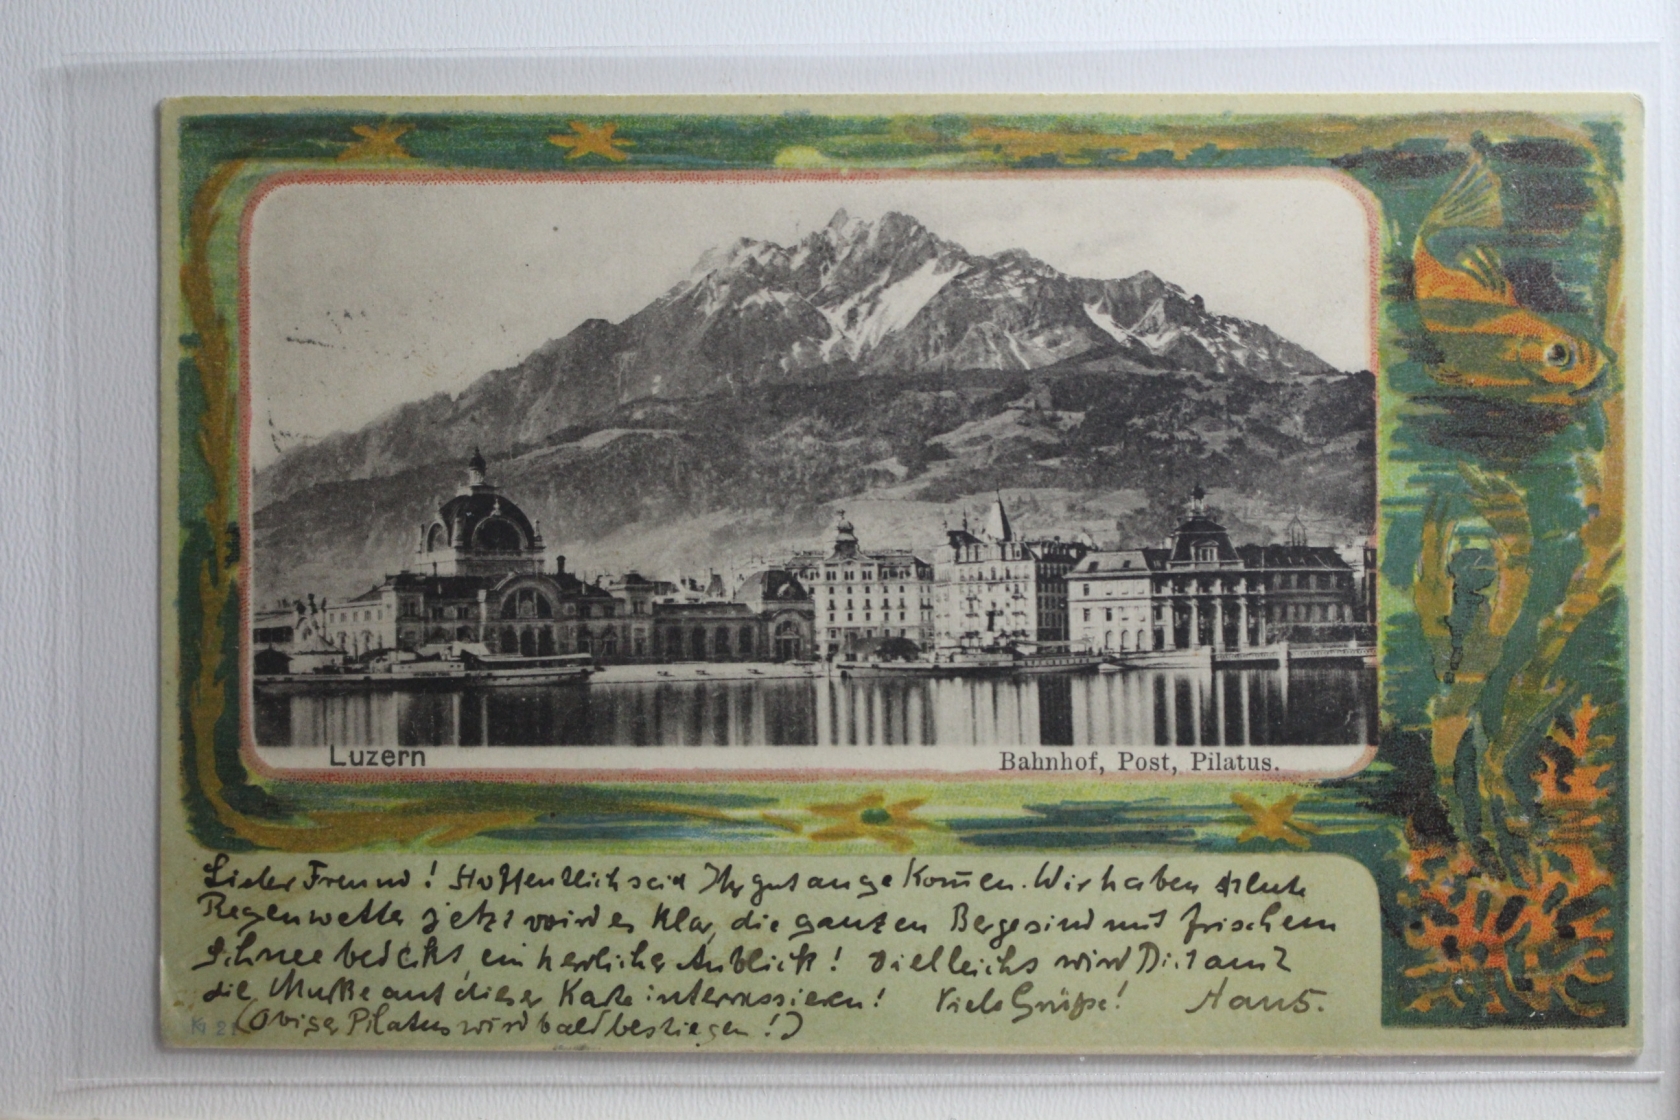 Luzern
Bahnhof, Post, Pilatus.
Lieber Freund! Hoffentlich seid Ihr gut angekom̅en. Wir haben heute
Regenwetter jetzt wird es klar, die ganzen Berge sind mit frischem
Schnee bedekt, ein herrlicher Anblick! Vielleicht wird Dich
die auf dieser Karte interressieren! Viele Grüße! Hans.
(Obiger Pilatus wird bald bestiegen!)